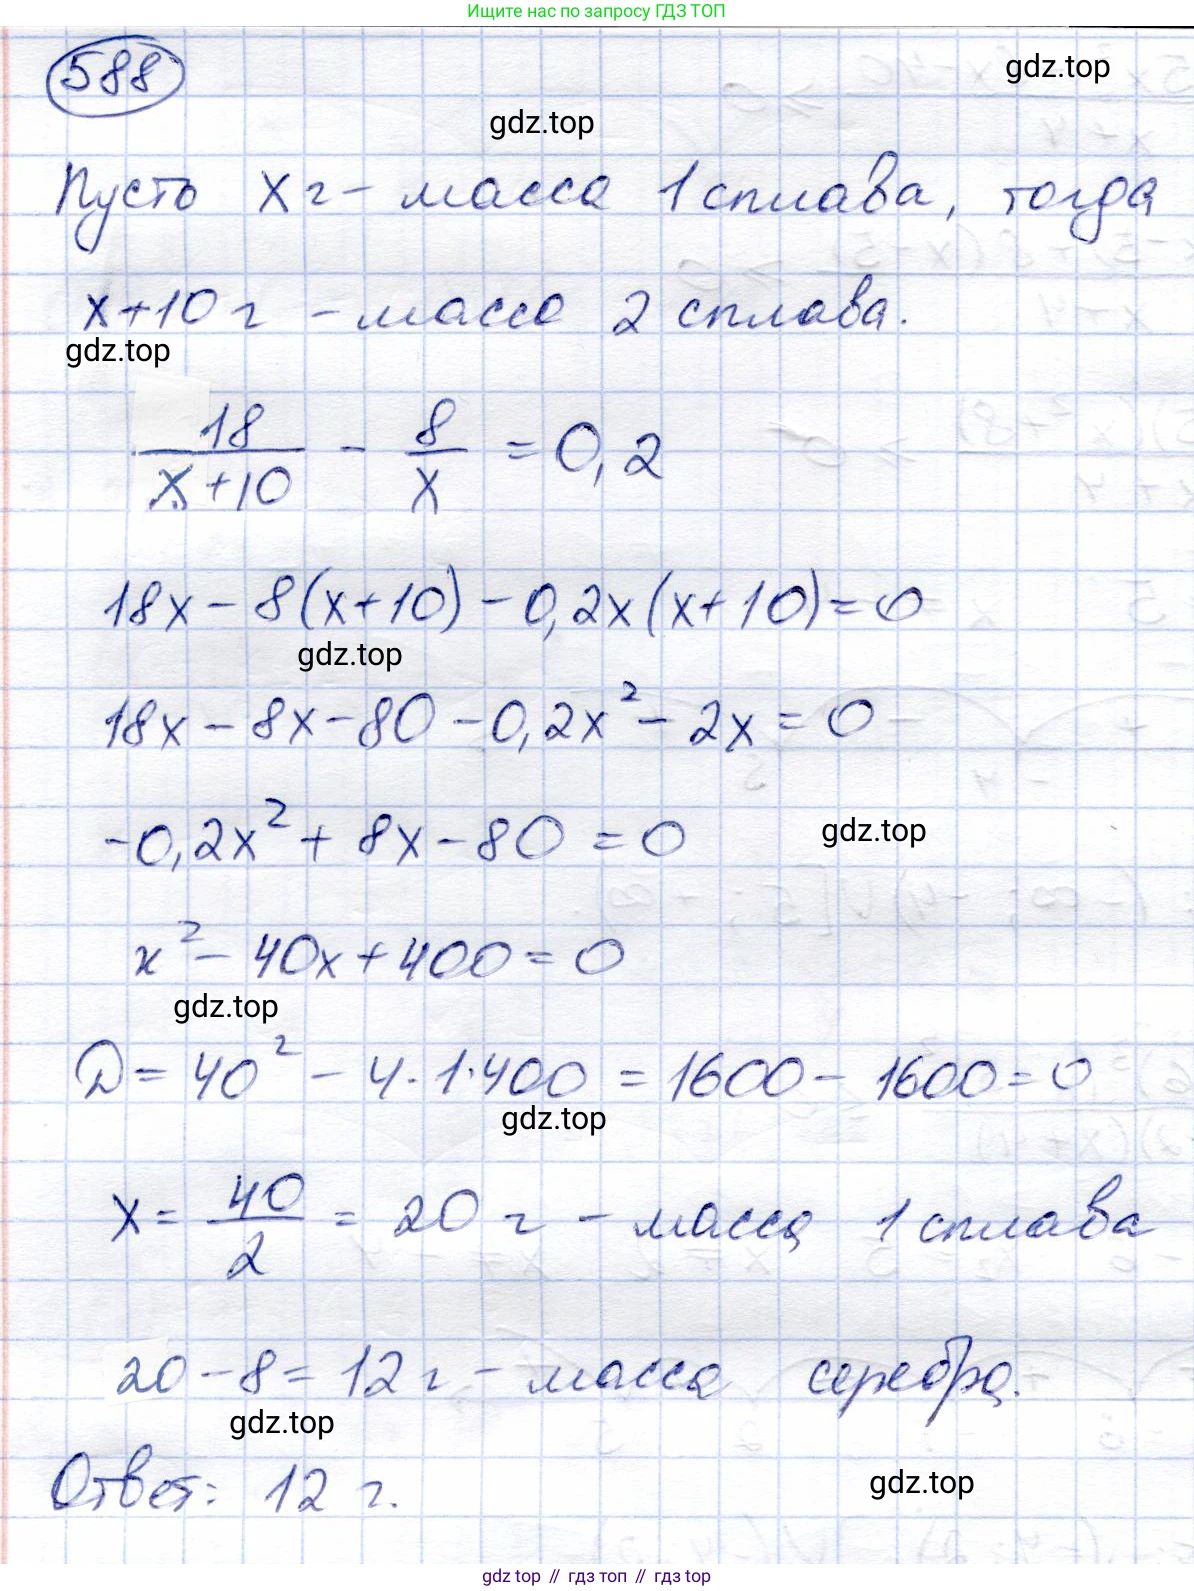 Ищите нас по запросу ГДЗ ТОП
588
gdz.top
gdz.top
Пусть x г – масса 1 сплава, тогда
x+10 г – масса 2 сплава.
gdz.top
18/(x+10) - 8/x = 0,2
18x - 8(x+10) - 0,2x(x+10) = 0
gdz.top
18x - 8x - 80 - 0,2x² - 2x = 0
-0,2x² + 8x - 80 = 0
gdz.top
x² - 40x + 400 = 0
gdz.top
D = 40² - 4·1·400 = 1600 - 1600 = 0
gdz.top
x = 40/2 = 20 г – масса 1 сплава
20 - 8 = 12 г – масса серебра.
gdz.top
Ответ: 12 г.
gdz.top
gdz top // гдз топ // гдз top